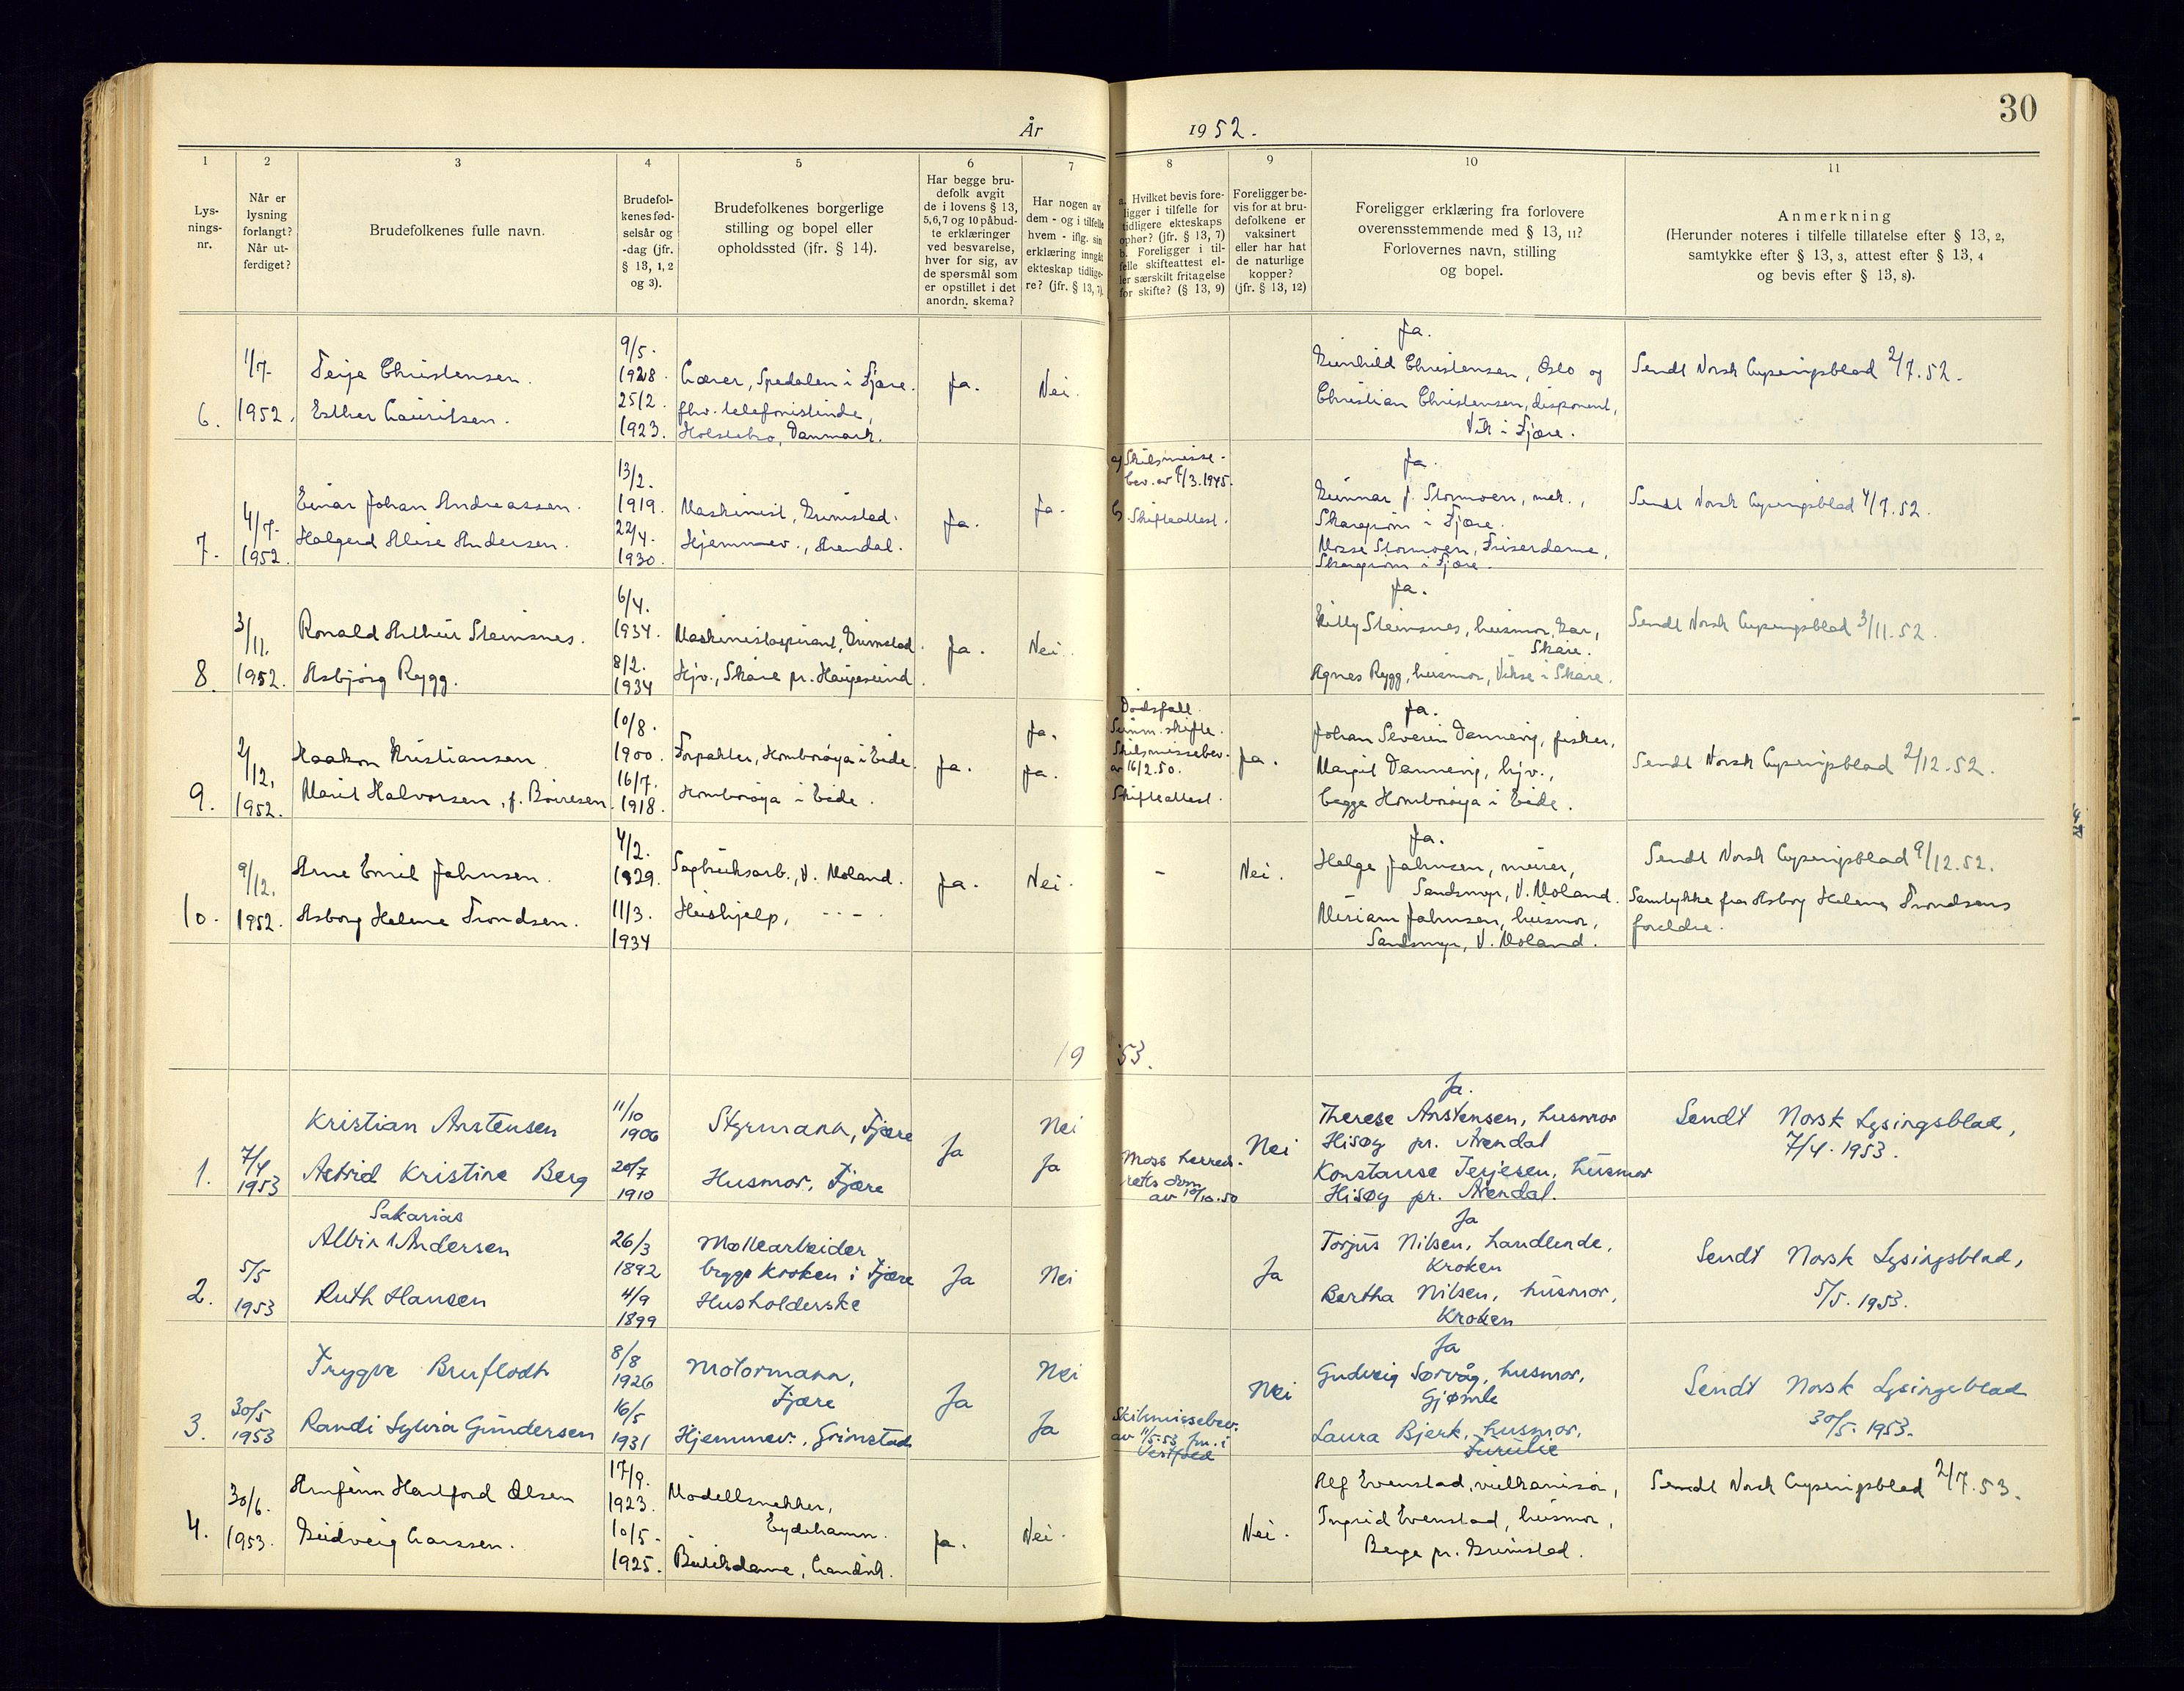 30
År 1952.
1
2
3
4
5
6
7
8
9
10
11
Lys-
nings-
nr.
Når er
lysning
forlangt?
Når ut-
ferdiget?
Brudefolkenes fulle navn.
Brudefol-
kenes fød-
selsår og
-dag (jfr.
§ 13, 1, 2
og 3).
Brudefolkenes borgerlige
stilling og bopel eller
opholdssted (jfr. § 14).
Har begge bru-
defolk avgit
de i lovens § 13,
5, 6, 7 og 10 påbud-
te erklæringer
ved besvarelse,
hver for sig, av
de spørsmål som
er opstillet i det
anordn. skema?
Har nogen av
dem - og i tilfelle
hvem - iflg. sin
erklæring inngått
ekteskap tidlige-
re? (jfr. § 13, 7).
a. Hvilket bevis fore-
ligger i tilfelle for
tidligere ekteskaps
opher? (jfr. § 13, 7)
b. Foreligger i til-
felle skifteattest el-
ler særskilt fritagelse
for skifte? (§ 13, 9)
Foreligger be-
vis for at bru-
defolkene er
vaksinert
eller har hat
de naturlige
kopper?
(jfr. § 13, 12)
Foreligger erklæring fra forlovere
overensstemmende med § 13, 11?
Forlovernes navn, stilling
og bopel.
Anmerkning
(Herunder noteres i tilfelle tillatelse efter § 13, 2,
samtykke efter § 13, 3, attest efter § 13, 4
og bevis efter § 13, 8).
6.
1/7-
1952.
Terje Christensen.
Esther Lauritsen.
9/5-
1928.
25/2.
1923.
Lærer, Spedalen i Fjære.
fhv. telefonistinde,
Holstebro, Danmark.
Ja.
Nei.
Ja.
Gunhild Christensen, Oslo og
Christian Christensen, disponent,
Vik i Fjære.
Sendt Norsk Lysingsblad 2/7.52.
7.
4/7-
1952.
Einar Johan Andreassen.
Halgerd Alise Andersen.
13/2.
1919.
22/4.
1930.
Maskinist, Grimstad.
Hjemmev., Arendal.
Ja.
Ja.
a) Skilsmisse-
bev. av /3.1945.
b) Skifteattest.
Ja.
Gunnar J. Stormoen, mek.,
i Fjære.
Mosse Stormoen, Friserdame,
i Fjære.
Sendt Norsk Lysingsblad 4/7.52.
8.
3/11.
1952.
Ronald Arthur Steinsnes.
Asbjørg Rygg.
6/4.
1934.
8/2.
1934
Maskinistaspirant, Grimstad.
Hjv., Skåre pr. Haugesund.
Ja.
Nei.
Ja.
Kitty Steinsnes, husmor,
Skåre.
Agnes Rygg, husmor, Vikse i Skåre.
Sendt Norsk Lysingsblad 3/11.52.
9.
2/12.
1952.
Haakon Kristiansen
Marit Halvorsen, f. Bøiresen.
10/8.
1900.
16/7.
1918.
Forpakter, Homborøya i Eide.
Homborøya i Eide.
Ja.
Ja.
Ja.
Dødsfall.
Summ. skifte.
Skilsmissebev.
av 16/2.50.
Skifteattest.
Ja.
Ja.
Johan Severin Dannevig, fisker,
Margit Dannevig, hjv.,
begge Homborøya i Eide.
Sendt Norsk Lysingsblad 2/12.52.
10.
9/12.
1952.
Arne Emil Jahnsen.
Asborg Helene Trondsen.
4/2.
1929.
11/3.
1934
Sagbruksarb., V. Moland.
Hushjelp, - - -
Ja.
Nei.
-
Nei.
Ja.
Helge Jahnsen, murer,
Sandsmyr, V. Moland.
Miriam Jahnsen, husmor,
Sandsmyr, V. Moland.
Sendt Norsk Lysingsblad 9/12.52.
Samtykke fra Asborg Helene Trondsens
foreldre.
1953.
1.
7/4
1953
Kristian Anstensen
Astrid Kristine Berg
11/10
1906
20/7
1910
Styrmann, Fjære
Husmor, Fjære
Ja
Nei
Ja
Moss herreds-
retts dom
av 10/10.50
Nei
Ja.
Therese Anstensen, husmor
Hisøy pr. Arendal
Konstanse Terjesen, husmor
Hisøy pr. Arendal.
Sendt Norsk Lysingsblad,
7/4. 1953.
2.
5/5
1953
Sakarias
Albin Andersen
Ruth Hansen
26/3
1892
4/9
1899
Møllearbeider
begge Kroken i Fjære
Husholderske
Ja
Nei
Ja
Ja
Torjus Nilsen, handlende,
Kroken
Bertha Nilsen, husmor,
Kroken
Sendt Norsk Lysingsblad,
5/5. 1953.
3.
30/5
1953
Trygve Bruflodt
Randi Sylvia Gundersen
8/8
1926
16/5
1931
Motormann,
Fjære
Hjemmev., Grimstad
Ja
Nei
Ja
Skilsmissebev.
av 11/5-53 fm. i
Vestfold
Nei
Ja
Gudveig Sørvåg, husmor,
Gjømle
Laura Bjerk, husmor,
Furulie
Sendt Norsk Lysingsblad
30/5. 1953.
4.
30/6.
1953.
Arnfinn Hartford Olsen
Gudveig Larssen.
17/9.
1923.
10/5-
1925.
Modellsnekker,
Eydehamn.
Butikkdame, Landvik.
Ja.
Nei.
Nei.
Alf Evenstad, vulkanisør,
Ingrid Evenstad, husmor,
Berge pr. Grimstad.
Sendt Norsk Lysingsblad 2/7.53.